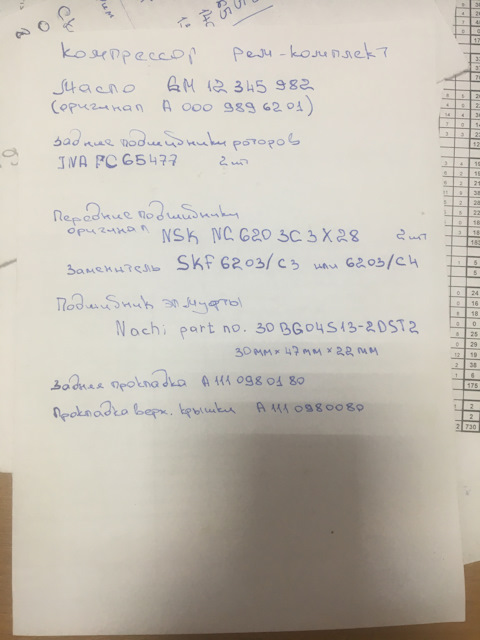 Компрессор рем-комплект
Масло GM 12 345 982
(оригинал A 000 989 62 01)
Задние подшибники роторов
INA FC 65477 2 шт
Передние подшибники
оригинал NSK NC 620 3C 3 X 28 2 шт
Заменитель SKF 6203/C3 или 6203/C4
Подшибник эл муфты
Nachi part no. 30BG04S13-2DST2
30мм × 47мм × 22мм
Задняя прокладка A 111 098 01 80
Прокладка верх. крышки A 111 0980080